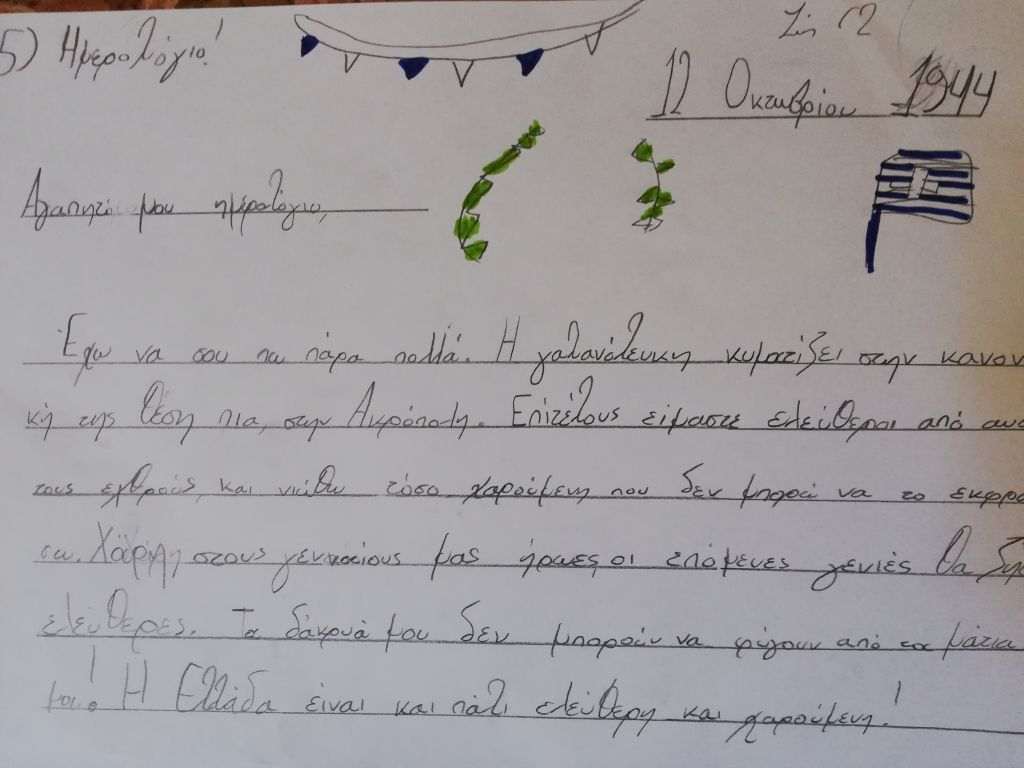 5) Ημερολόγιο!
12 Οκτωβρίου 1944
Αγαπητό μου ημερολόγιο,
Έχω να σου πω πάρα πολλά. Η γαλανόλευκη κυματίζει στην κανονι
κή της θέση πια, στην Ακρόπολη. Επιτέλους είμαστε ελεύθεροι από αυ
τους εχθρούς, και νιώθω τόσο χαρούμενη που δεν μπορώ να το εκφρά
σω. Χάρη στους γενναίους μας ήρωες οι επόμενες γενιές θα
ελεύθερες. Τα δάκρυά μου δεν μπορούν να φύγουν από τα μάτια
μου! Η Ελλάδα είναι και πάλι ελεύθερη και χαρούμενη!